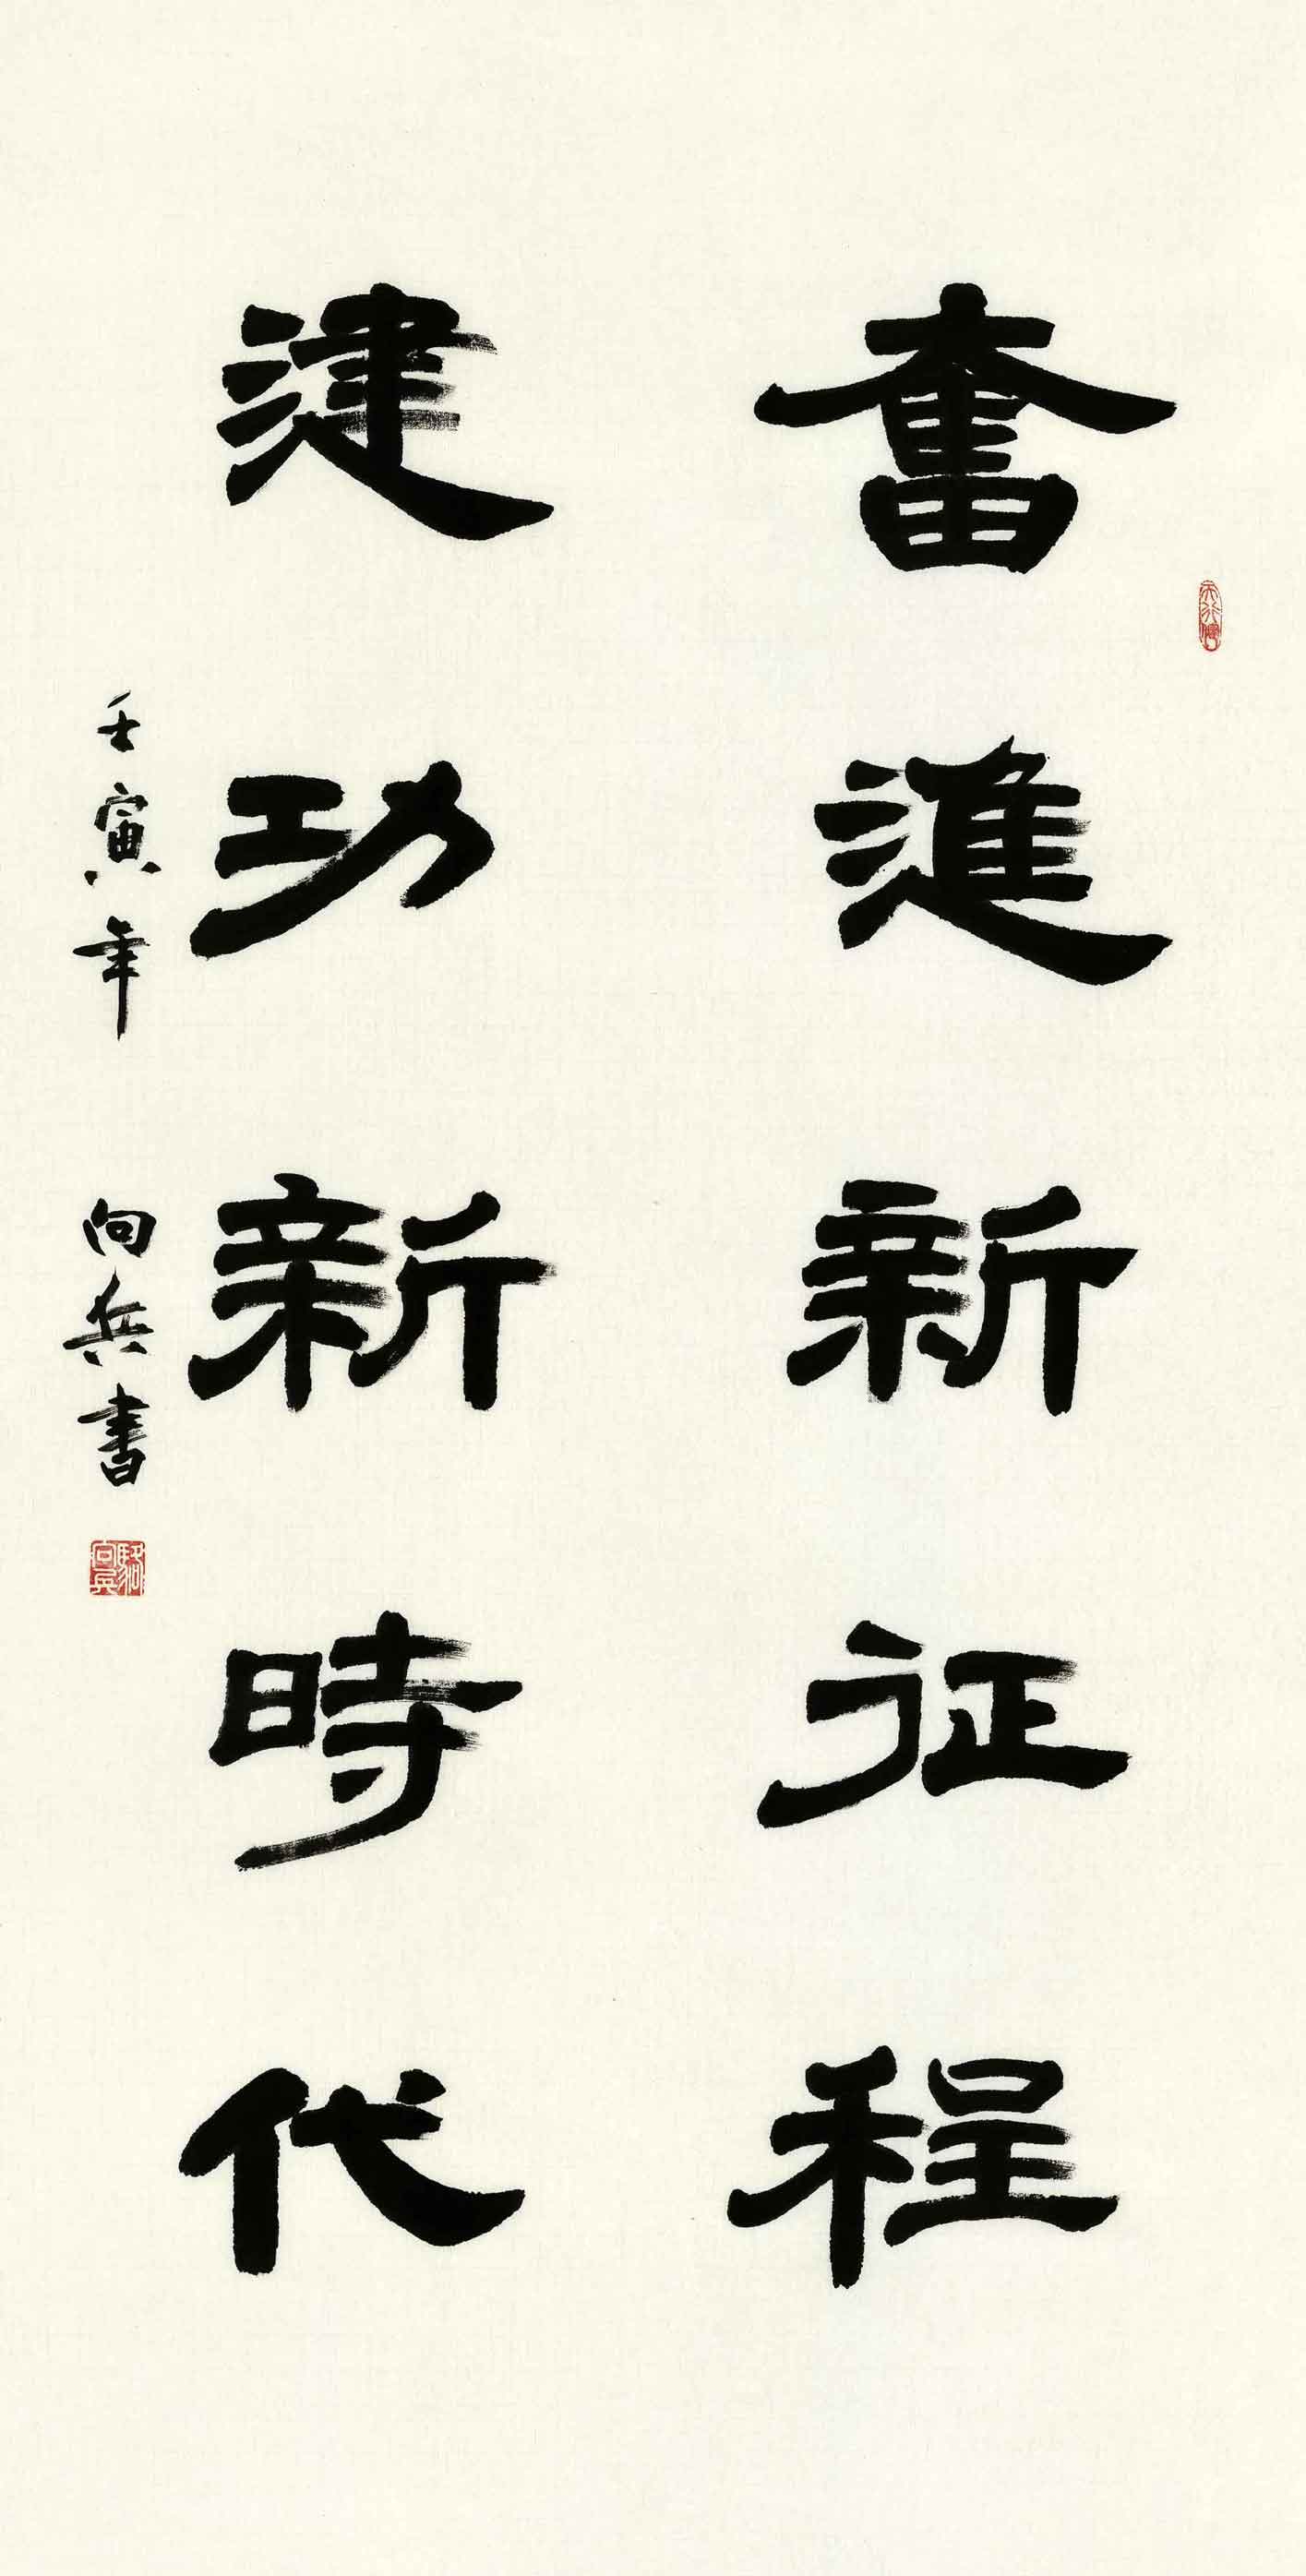 奮進新征程
建功新時代
壬寅年 向兵書
駱向兵